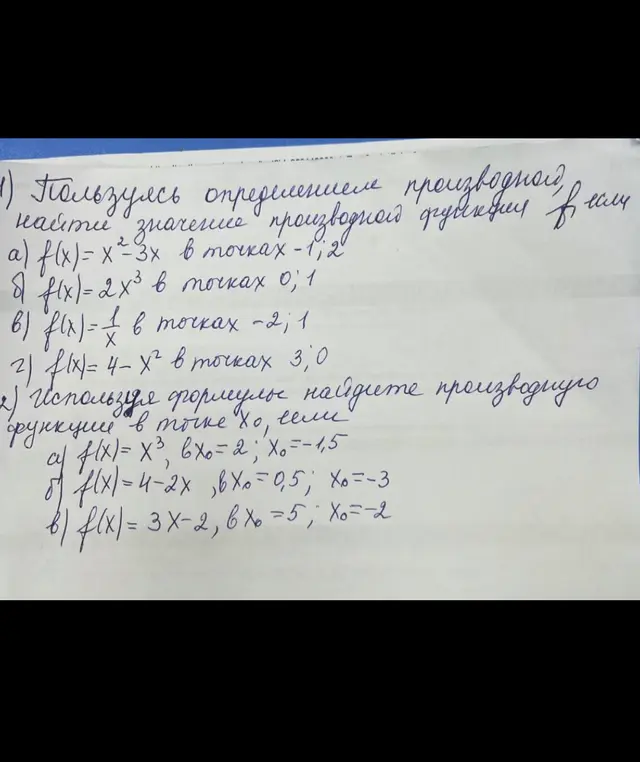 1) Пользуясь определением производной,
найти значение производной функции f, если
а) f(x)= x²-3x в точках -1; 2
б) f(x)= 2x³ в точках 0; 1
в) f(x)= 1/x в точках -2; 1
г) f(x)= 4-x² в точках 3; 0
2) Используя формулы найдите производную
функции в точке x₀, если
а) f(x)= x³, в x₀=2; x₀=-1,5
б) f(x)=4-2x, в x₀=0,5; x₀=-3
в) f(x)= 3x-2, в x₀=5; x₀=-2